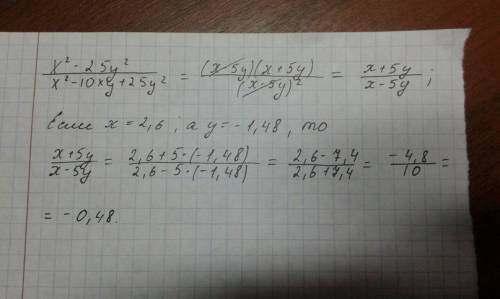 (x² - 25y²)/(x² - 10xy + 25y²) = ((x-5y)(x+5y))/((x-5y)²) = (x+5y)/(x-5y) ;
Если x = 2,6 ; а y = - 1,48 , то
(x+5y)/(x-5y) = (2,6+5·(-1,48))/(2,6-5·(-1,48)) = (2,6-7,4)/(2,6+7,4) = (-4,8)/10 =
= - 0,48.